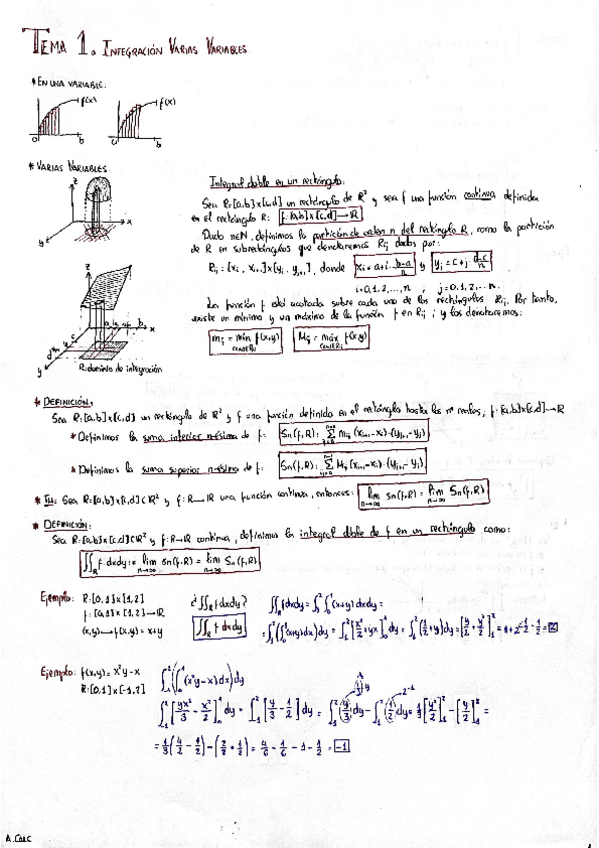 TEMA 1. INTEGRACIÓN VARIAS VARIABLES
* EN UNA VARIABLE:
f(x) f(x)
a b a b
* VARIAS VARIABLES
Integral doble en un rectángulo:
Sea R=[a,b]x[c,d] un rectángulo de R² y sea f una función continua definida
en el rectángulo R: f:[a,b]x[c,d]→R
Dado n∈N, definimos la partición de orden n del rectángulo R, como la partición
de R en subrectángulos que denotaremos Rij dados por:
Rij = [xi, xi+1]x[yj, yj+1], donde xi = a+i·(b-a)/n y yj = c+j·(d-c)/n
i=0,1,2,...,n ; j=0,1,2,...n.
La función f está acotada sobre cada uno de los rectángulos Rij. Por tanto,
existe un mínimo y un máximo de la función f en Rij, y los denotaremos:
mij = min f(x,y) Mij = máx f(x,y)
R=dominio de integración
* DEFINICIÓN:
Sea R=[a,b]x[c,d] un rectángulo de R² y f una función definida en el rectángulo hasta los nº reales, f:[a,b]x[c,d]→R
* Definimos la suma inferior n-ésima de f: sn(f,R)= Σ mij (xi+1-xi)·(yj+1-yj)
* Definimos la suma superior n-ésima de f: Sn(f,R)= Σ Mij (xi+1-xi)·(yj+1-yj)
* TH: Sea R=[a,b]x[c,d]⊂R² y f:R→R una función continua, entonces: lim n→∞ sn(f,R) = lim n→∞ Sn(f,R)
* DEFINICIÓN:
Sea R=[a,b]x[c,d]⊂R² y f:R→R continua, definimos la integral doble de f en un rectángulo como:
∬R f dxdy := lim n→∞ sn(f,R) = lim n→∞ Sn(f,R)
Ejemplo: R=[0,1]x[1,2] ¿∬R f dxdy? ∬R f dxdy = ∫₁²∫₀¹(x+y)dxdy =
f:[0,1]x[1,2]→R
(x,y)→f(x,y)=x+y ∬R f dxdy = ∫₁²(∫₀¹(x+y)dx)dy = ∫₁²[x²/2+yx]₀¹dy = ∫₁²(1/2+y)dy = [y/2+y²/2]₁² = 1+2-1/2-1/2 = 2
Ejemplo: f(x,y)= x²y-x ∫₋₁²(∫₀¹(x²y-x)dx)dy
R=[0,1]x[-1,2]
∫₋₁²[yx³/3 - x²/2]₀¹dy = ∫₋₁²[y/3 - 1/2]dy = ∫₋₁²(y/3)dy - ∫₋₁²(1/2)dy = 1/3[y²/2]₋₁² - [y/2]₋₁² =
= 1/3(4/2 - 1/2) - (2/2 + 1/2) = 4/6 - 1/6 - 1 - 1/2 = -1
A. CALC
1